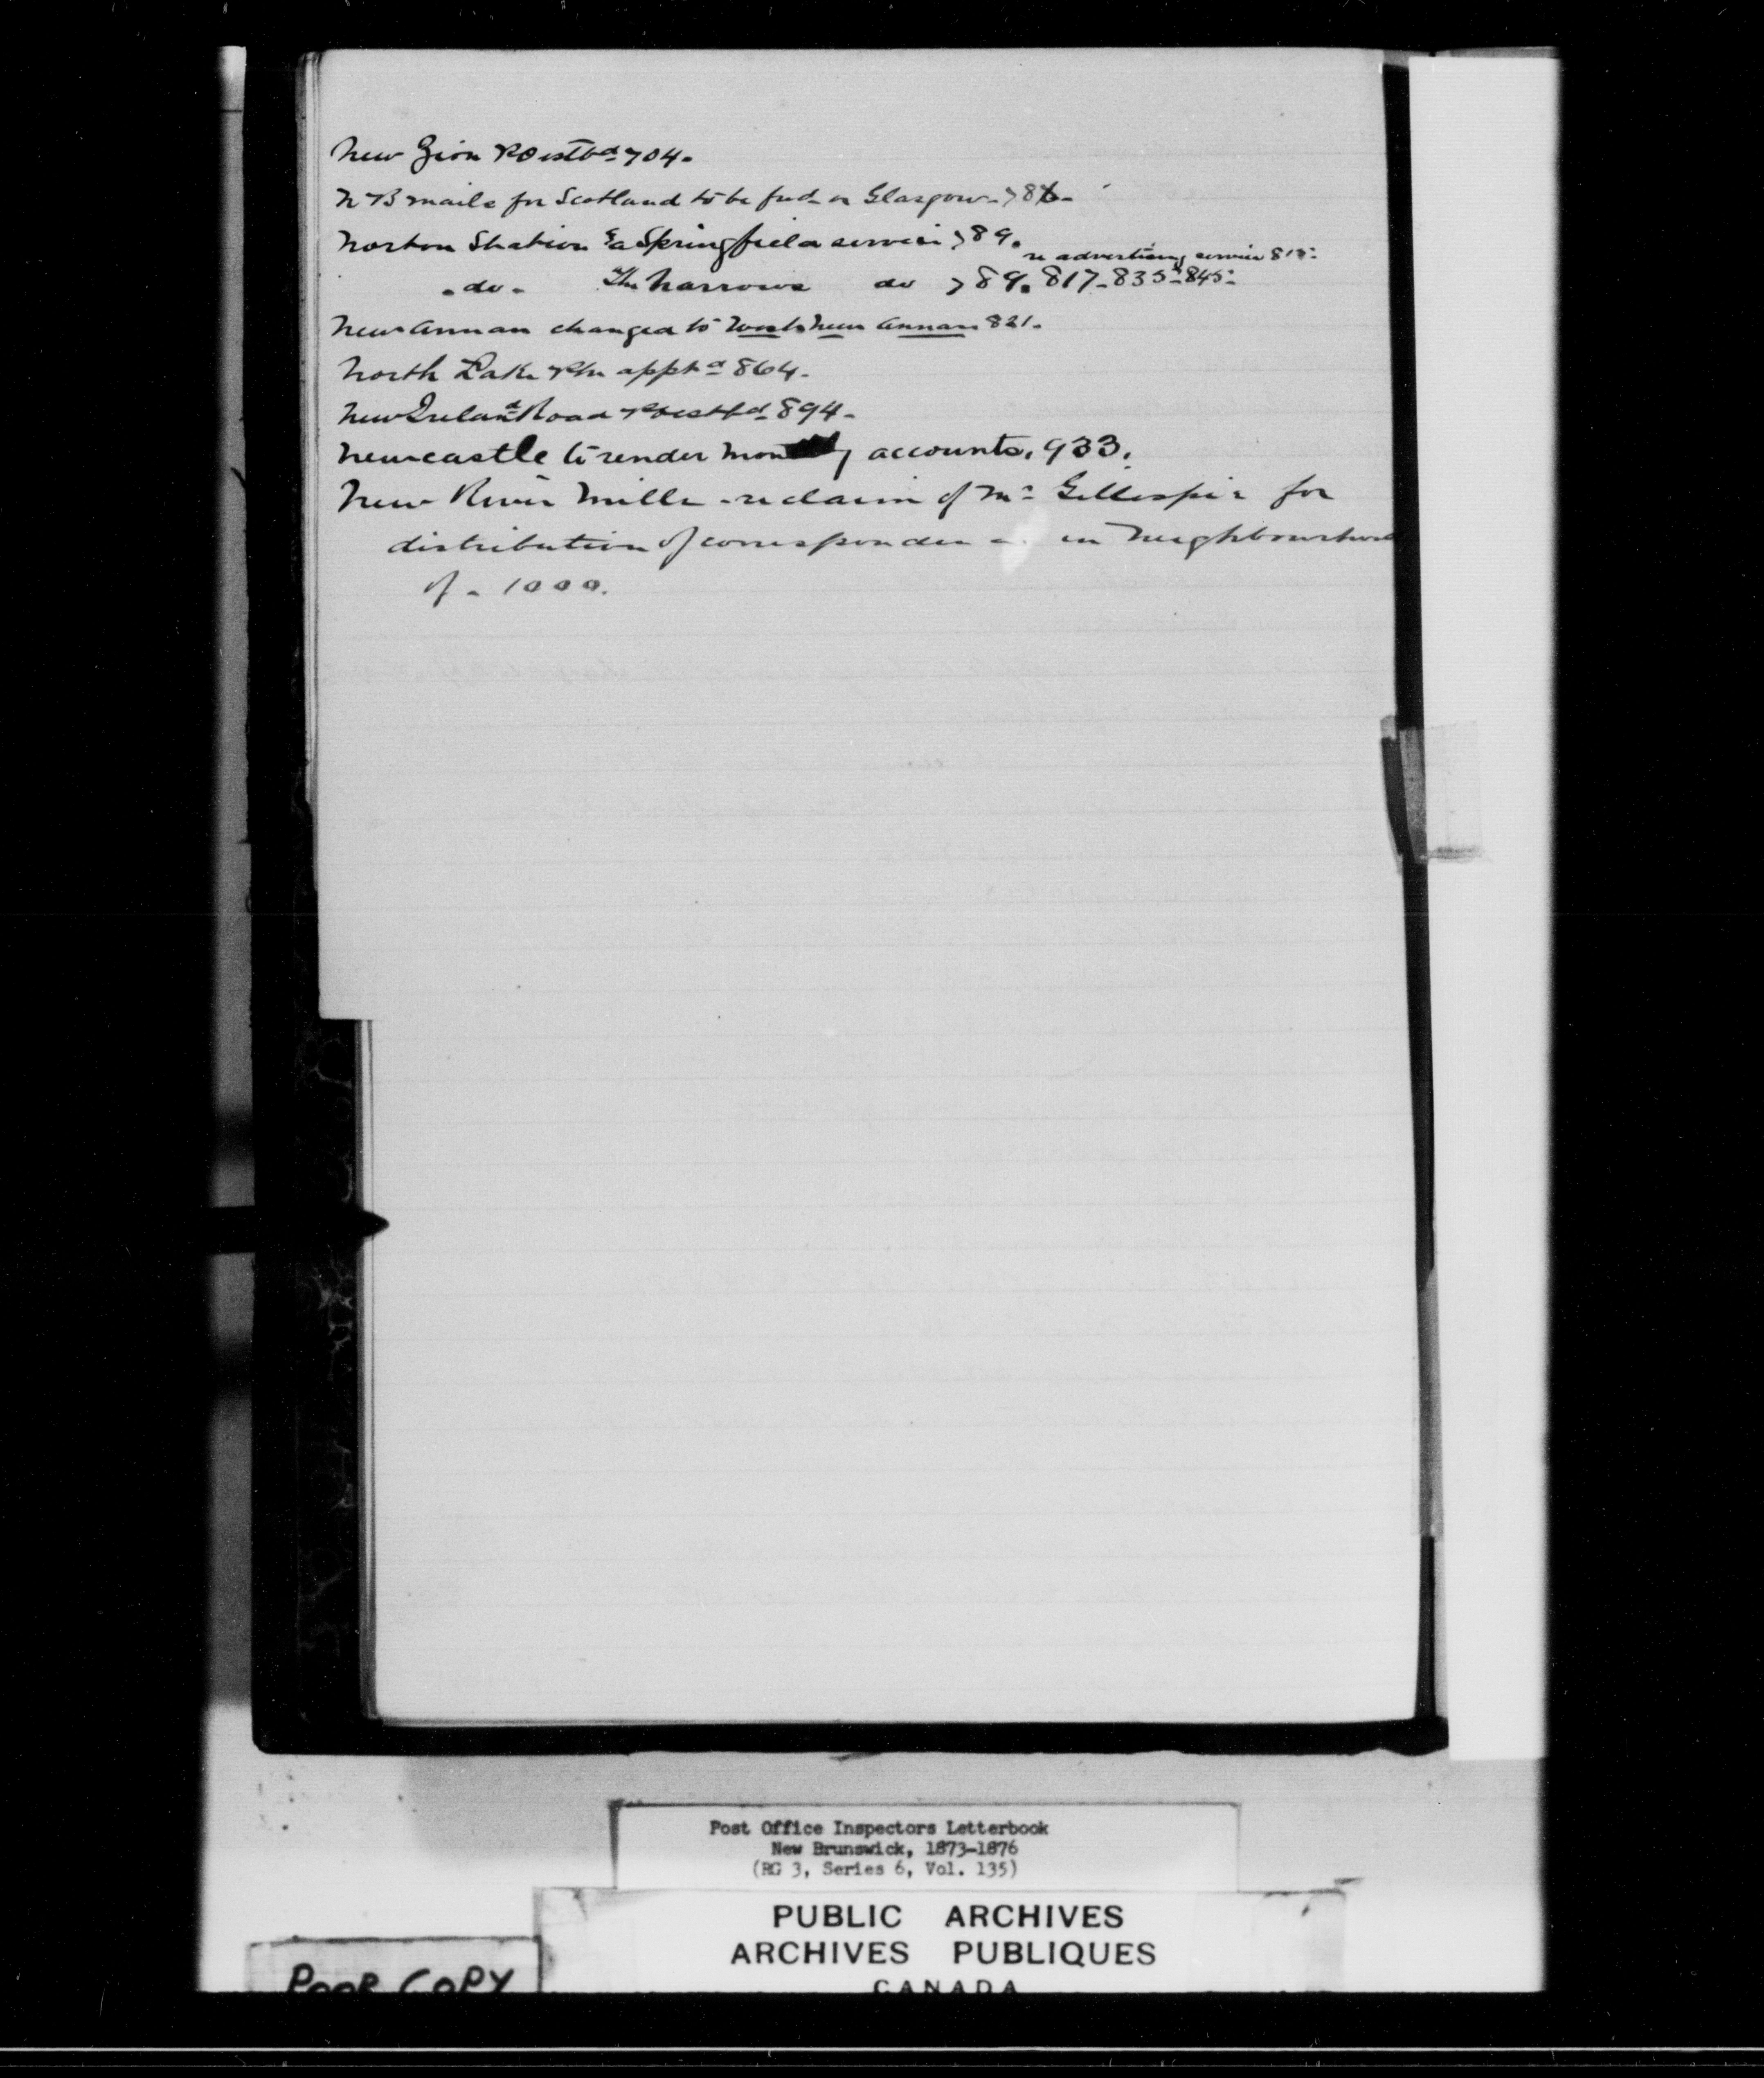 New Zion PO estbd 704.
N B mails for Scotland to be fwd on Glasgow - 786 -
Norton Station & Springfield service 789.
re advertising service 817 -
- do - The Narrows do 789. 817 - 835 - 845 -
New Annan changed to West New Annan 821.
North Lake PM apptd 864.
New Ireland Road PO estbd 894 -
Newcastle to render monthly accounts. 933.
New River Mills - re claim of Mr Gillespie for
distribution of correspondence in neighbourhood
of - 1000.
Post Office Inspectors Letterbook
New Brunswick, 1873-1876
(RG 3, Series 6, Vol. 135)
PUBLIC ARCHIVES
ARCHIVES PUBLIQUES
CANADA
POOR COPY